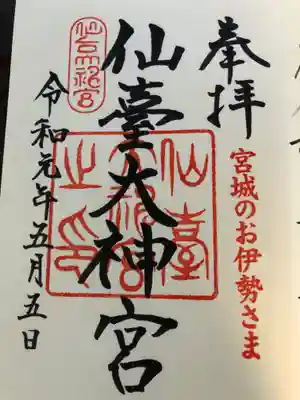 奉拝
宮城のお伊勢さま
仙臺大神宮
仙臺大神宮之印
令和元年五月五日